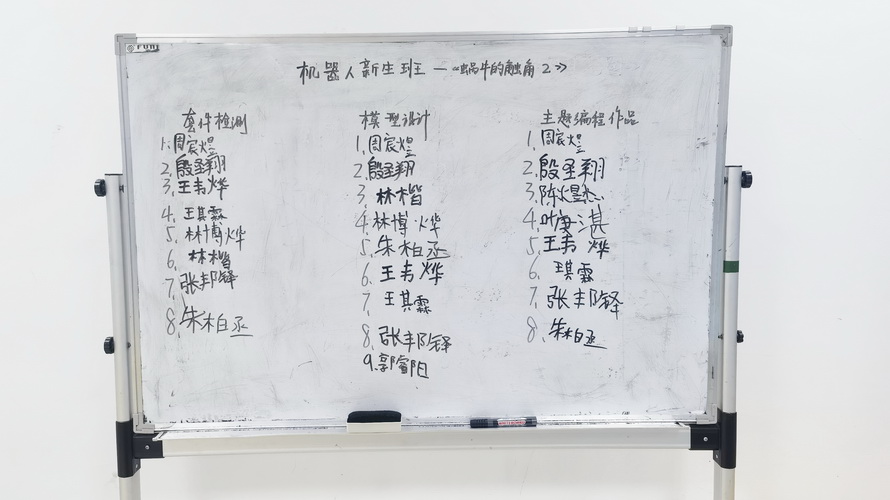 机器人新生班 — 《蜗牛的触角2》
套件检测
1. 周宸煜
2. 殷圣翔
3. 王韦烨
4. 王其霖
5. 林博烨
6. 林楷
7. 张邦铎
8. 朱柏丞
模型设计
1. 周宸煜
2. 殷圣翔
3. 林楷
4. 林博烨
5. 朱柏丞
6. 王韦烨
7. 王其霖
8. 张邦铎
9. 郭睿阳
主题编程作品
1. 周宸煜
2. 殷圣翔
3. 陈煜杰
4. 叶湛
5. 王韦烨
6. 琪霖
7. 张邦铎
8. 朱柏丞